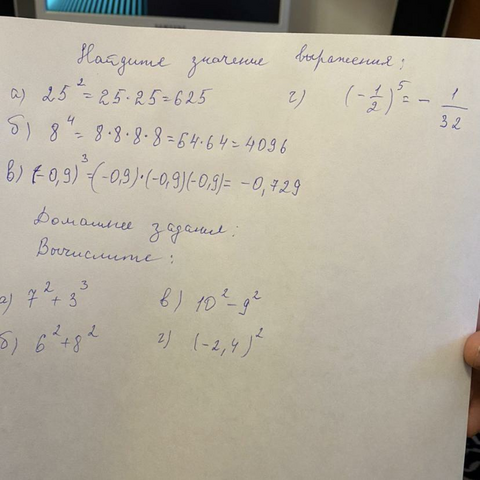 Найдите значение выражения:
а) 25² = 25·25 = 625
г) (-1/2)⁵ = - 1/32
б) 8⁴ = 8·8·8·8 = 64·64 = 4096
в) (-0,9)³ = (-0,9)·(-0,9)(-0,9) = -0,729
Домашнее задания:
Вычислите:
а) 7² + 3³
в) 10² - 9²
б) 6² + 8²
г) (-2,4)²